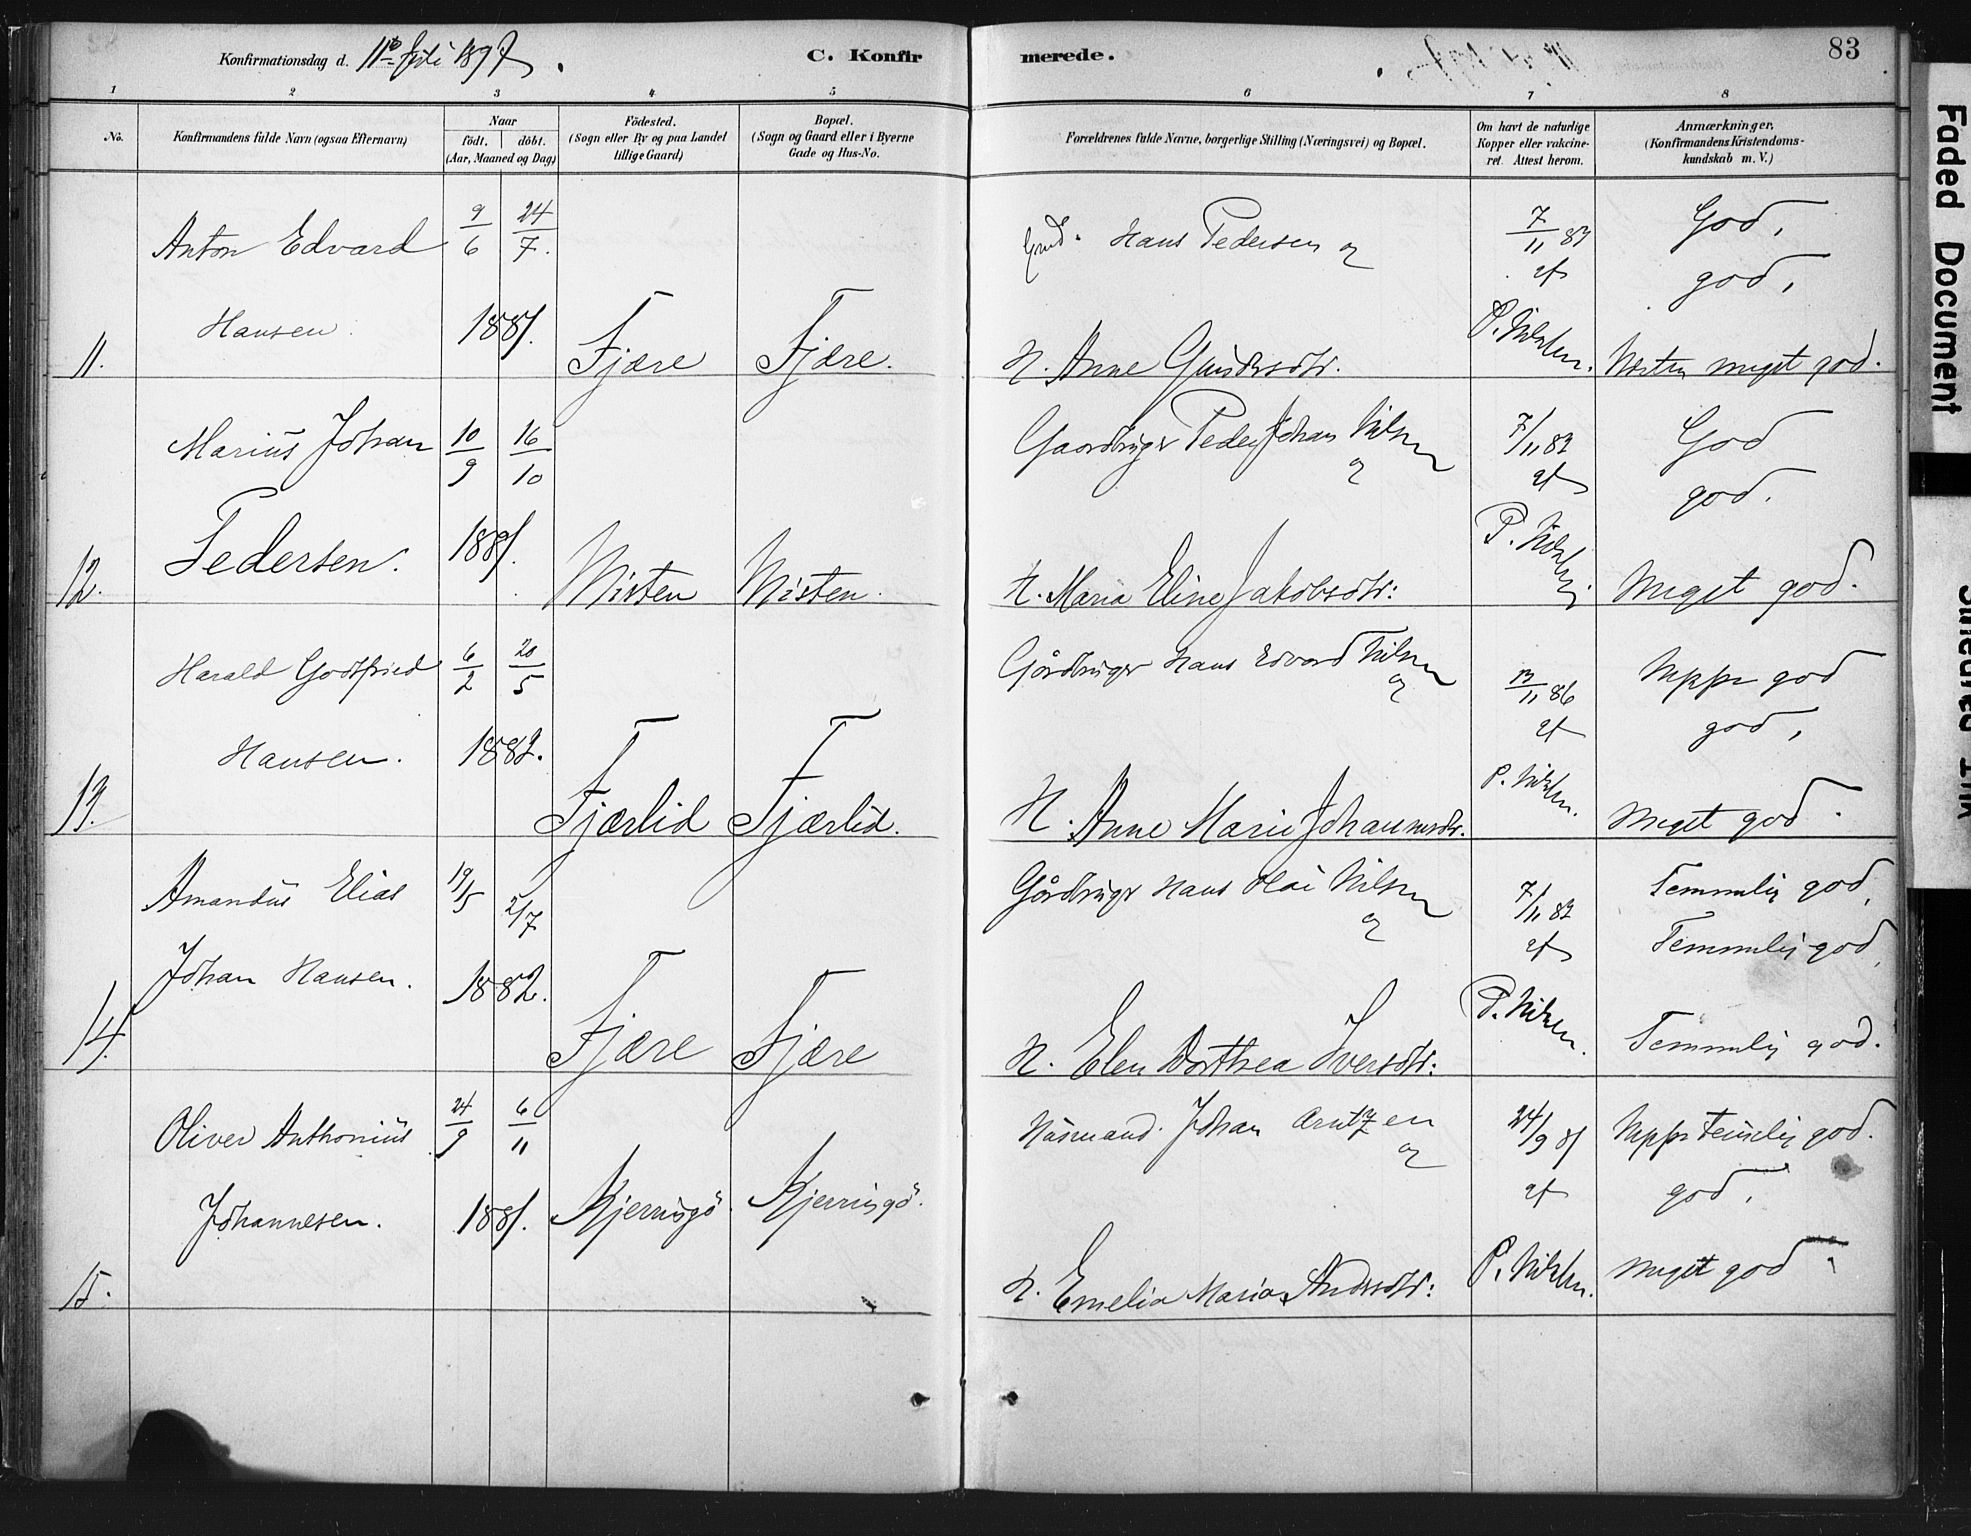 Konfirmationsdag d. 11te Juli 1897.
C. Konfirmerede.
83
1 2 3 4 5 6 7 8
No.
Konfirmandens fulde Navn (ogsaa Efternavn)
Naar
födt. döbt.
(Aar, Maaned og Dag)
Födested.
(Sogn eller By og paa Landet
tillige Gaard)
Bopæl.
(Sogn og Gaard eller i Byerne
Gade og Hus-No.
Forældrenes fulde Navne, borgerlige Stilling (Næringsvei) og Bopæl.
Om havt de naturlige
Kopper eller vakcine-
ret. Attest herom.
Anmærkninger,
(Konfirmandens Kristendoms-
kundskab m. V.)
11.
Anton Edvard
Hansen
9/6 24/7.
1881.
Fjære
Fjære.
Hans Pedersen og
H. Anne Gundersdtr.
7/11 87
af
God,
god,
Næsten meget god.
12.
Marius Johan
Pedersen.
10/9 16/10
1881.
Misten
Misten.
Gaardbruger Peder Johan Nilsen
og
H. Maria Eline Jakobsdtr:
7/11 87
af
God
god.
Meget god.
13.
Harald Godtfried
Hansen.
6/2 20/5
1882.
Fjærlid
Fjærlid.
Gårdbruger Hans Edvard Nilsen
og
H. Anne Marie Johannesdtr.
13/11 86
af
Neppe god
god,
Meget god.
14.
Amandus Elias
Johan Hansen.
19/5 2/7
1882.
Fjære
Fjære
Gårdbruger Hans Olai Nilsen
og
H. Elen Dorthea Iversdtr:
7/11 87
af
Temmelig god,
Temmelig god,
Temmelig god.
15.
Oliver Anthonius
Johannesen.
24/9 6/11
1881.
Kjerringö
Kjerringö.
Husmand Johan Arntzen
og
H. Emelia Maria Andersdtr:
24/9 81
af
Neppe temmelig god.
god.
Meget god
Faded Document
Smeared Ink